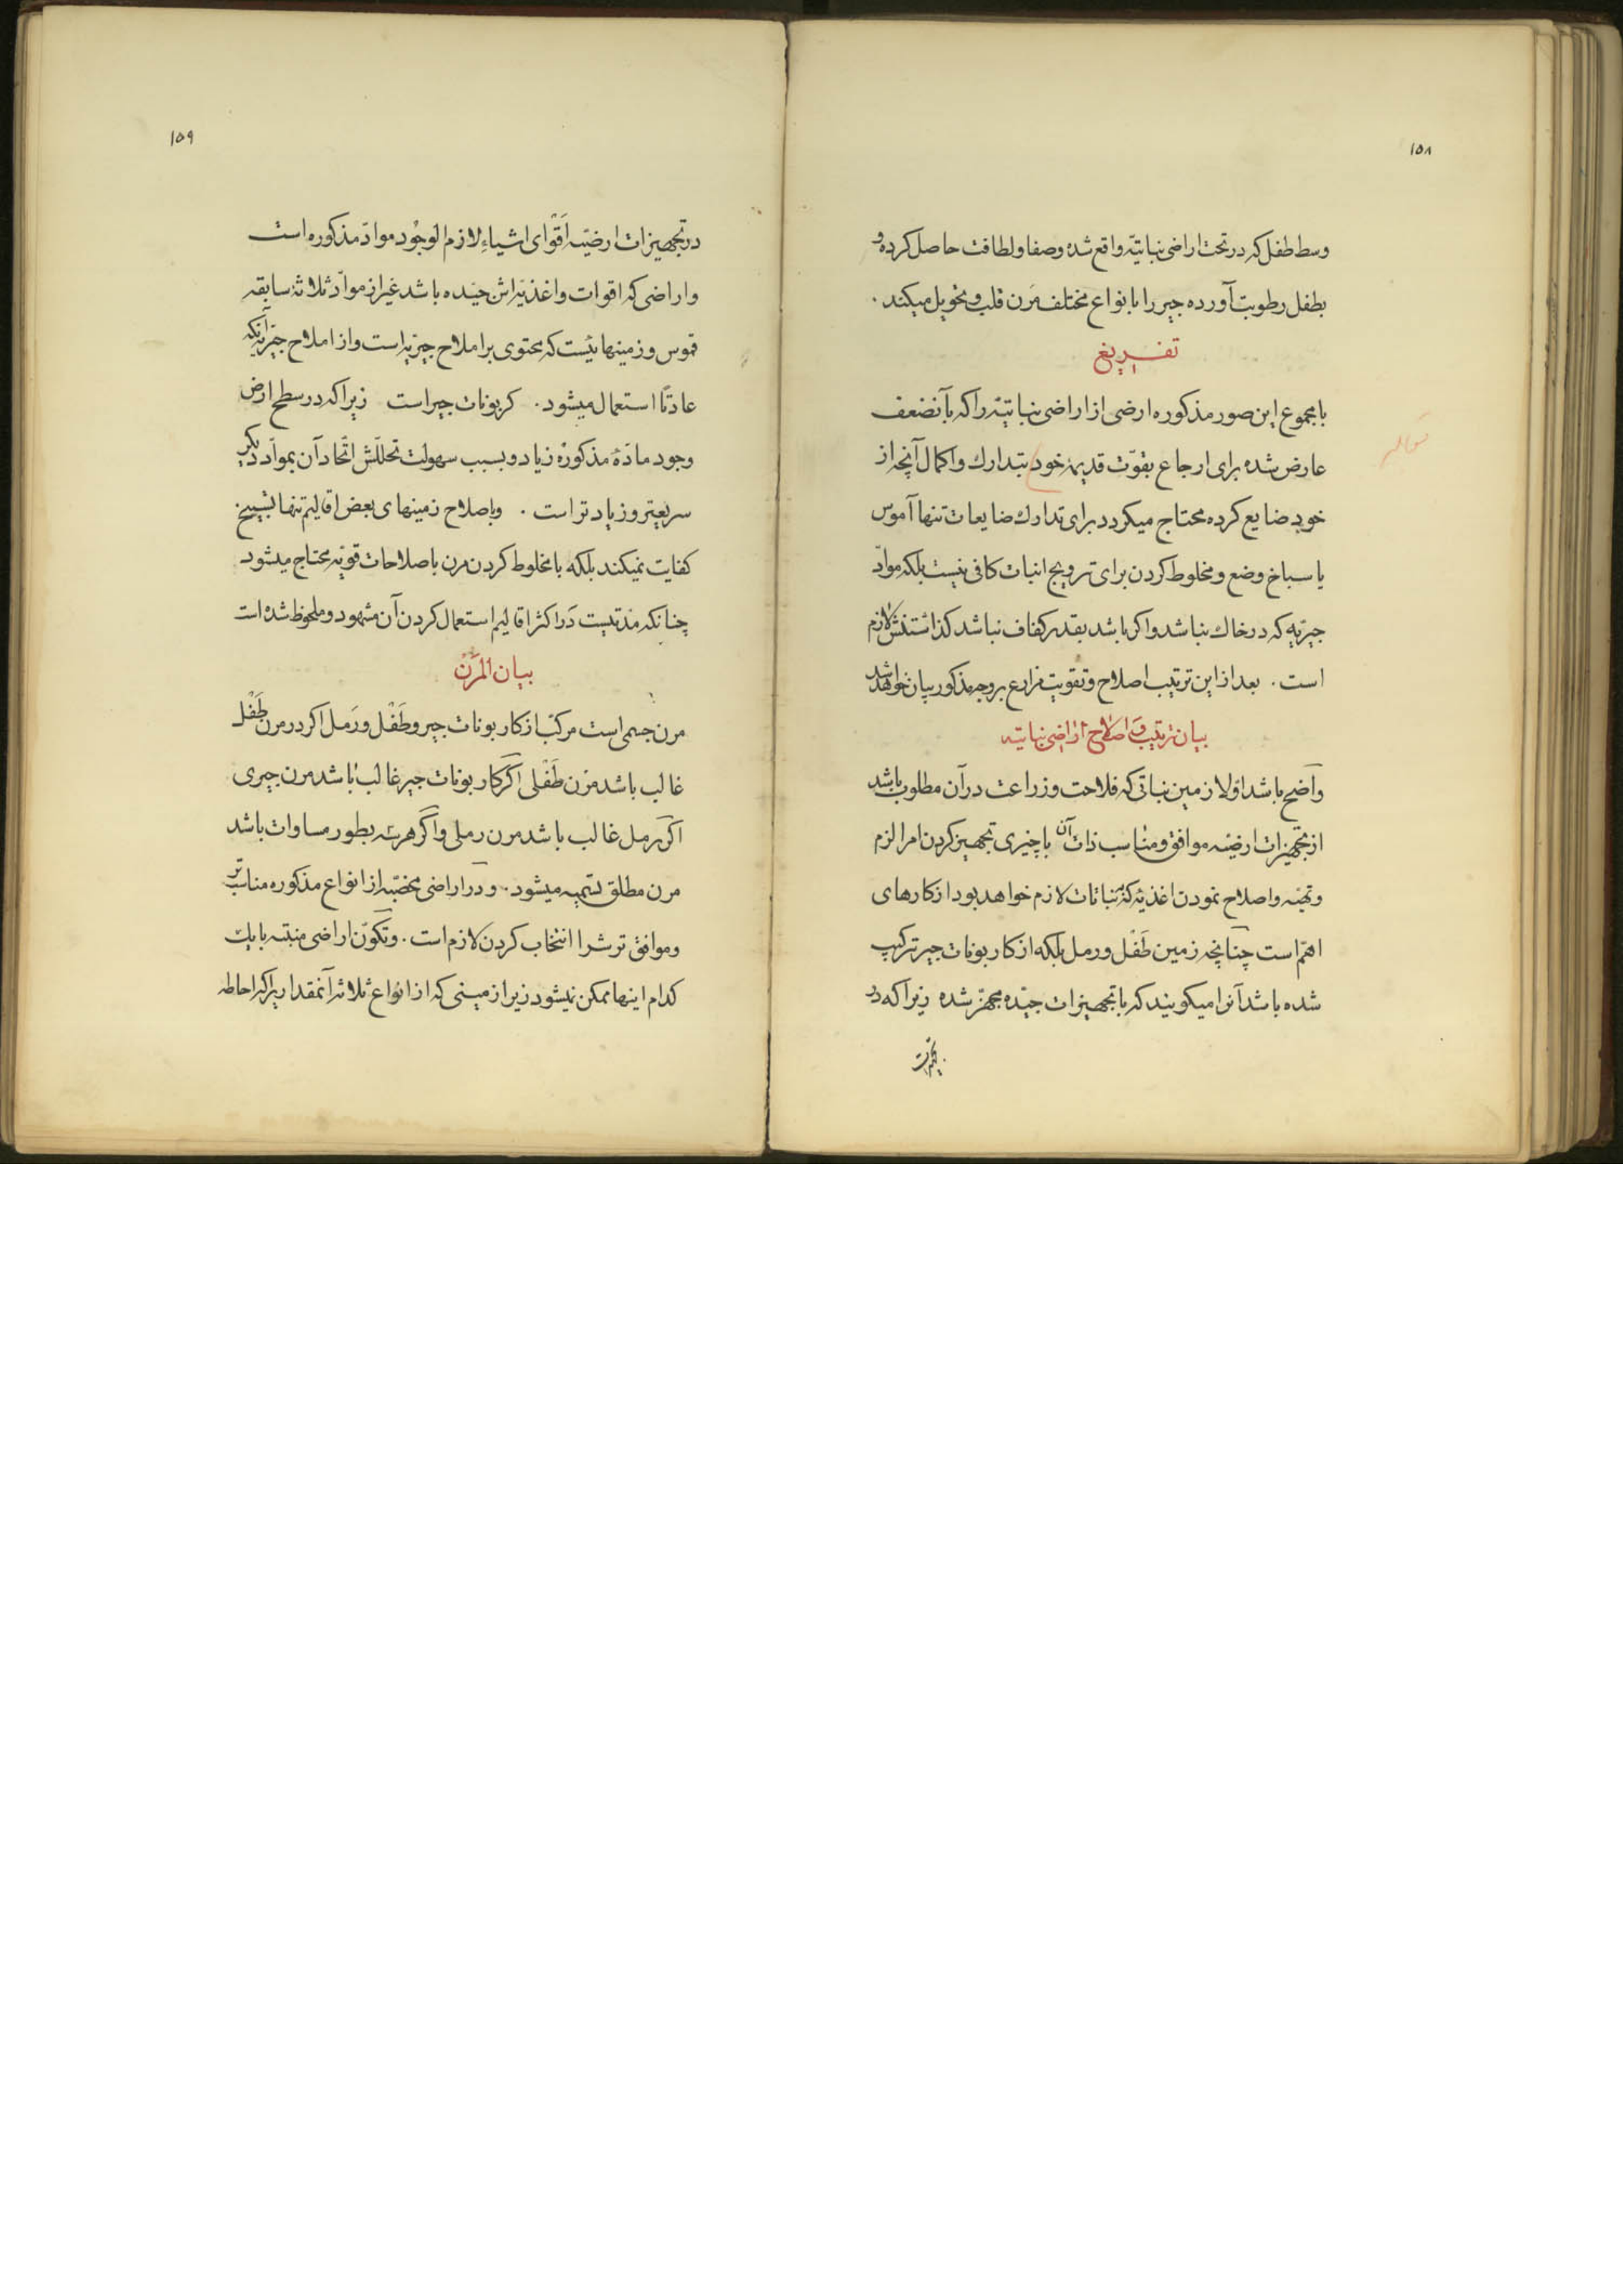 ١٥٨
وسط طفل که در تحت اراضی نباتیّه واقع شده وصفا ولطافت حاصل کرده و
بطفل رطوبت آورده جیر را با نواع مختلف مرن قلب و تحویل میکند .
تفریغ
با مجموع این صور مذکوره ارضی از اراضی نباتیّه را که بآن ضعف
عارض شده برای ارجاع بقوّت قدیمۀ خود بتدارك واکمال آنچه از
خود ضایع کرده محتاج میکردد برای تدارك ضایعات تنها آموس
یا سباخ وضع ومخلوط کردن برای ترویج انبات کافی نیست بلکه موادّ
جیرّیه که در خاك نباشد واکر باشد بقدر کفاف نباشد کذاشتنش لازم
است . بعد از این ترتیب اصلاح وتقویت مزارع بر وجه مذکور بیان خواهد شد
بیان ترتیب و اصلاح اراضی نباتیّه
واضح باشد اوّلا زمین نباتی که فلاحت وزراعت در آن مطلوب باشد
از تجهیزات ارضیّه موافق ومناسب ذات آن با چیزی تجهیز کردن امر الزم
وتهیّه واصلاح نمودن اغذیه که بنباتات لازم خواهد بود از کارهای
اهمّ است چنانچه زمین طَفْل ورمل بلکه از کاربونات جیر ترکیب
شده باشد آنرا میکویند که با تجهیزات جیّده مجهّز شده زیرا که در
تجهیزات
١٥٩
در تجهیزات ارضیّه اَقْوای اشیاءِ لازم الوجُود موادّ مذکوره است
واراضی که اقوات واغذیه اش جیّده باشد غیر از موادّ ثلاثۀ سابقه
قموس وزمینهائیست که محتوی بر املاح جیرّیه است واز املاح جیرّیه آنکه
عادتًا استعمال میشود . کربونات جیر است زیرا که در سطح ارض
وجود مادّۀ مذکوره زیاد وبسبب سهولت تحلّلش اتّحاد آن بموادّ دیکر
سریعتر وزیاد تر است . وباصلاح زمینهای بعض اقالیم تنها تسبیخ
کفایت نمیکند بلکه با مخلوط کردن مرن باصلاحات قویّه محتاج میشود
چنانکه مدّتیست در اکثر اقالیم استعمال کردن آن مشهود وملحوظ شده است
بیان المَرْن
مرن جسمی است مرکّب از کاربونات جیر وطَفْل ورَمل اکر در مرن طَفْل
غالب باشد مرن طَفْلی اکر کاربونات جیر غالب باشد مرن جیری
اکر رمل غالب باشد مرن رملی واکر هر سه بطور مساوات باشد
مرن مطلق تسمیه میشود . ودر اراضی مخصّبه از انواع مذکوره مناسب تر
وموافق ترش را انتخاب کردن لازم است . وتکوّن اراضی منبته با یك
کدام اینها ممکن نمیشود زیرا زمینی که از انواع ثلاثه آنمقدار را که احاطه